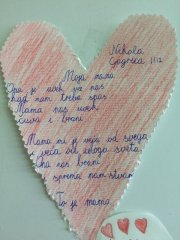 Nikola
III2
Moja mama
Ona je uvek uz nas
kad nam treba spas
Mama nas uvek
čuva i brani
Mama mi je veća od svega
i veća od celoga sveta
Ona nas brani
sprema nam
To je mama